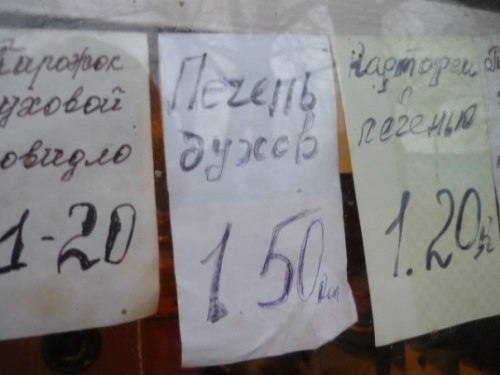 Пирожок
уховой
овидло
1-20
Печень
духов
1.50
Картофель
с
печенью
1.20